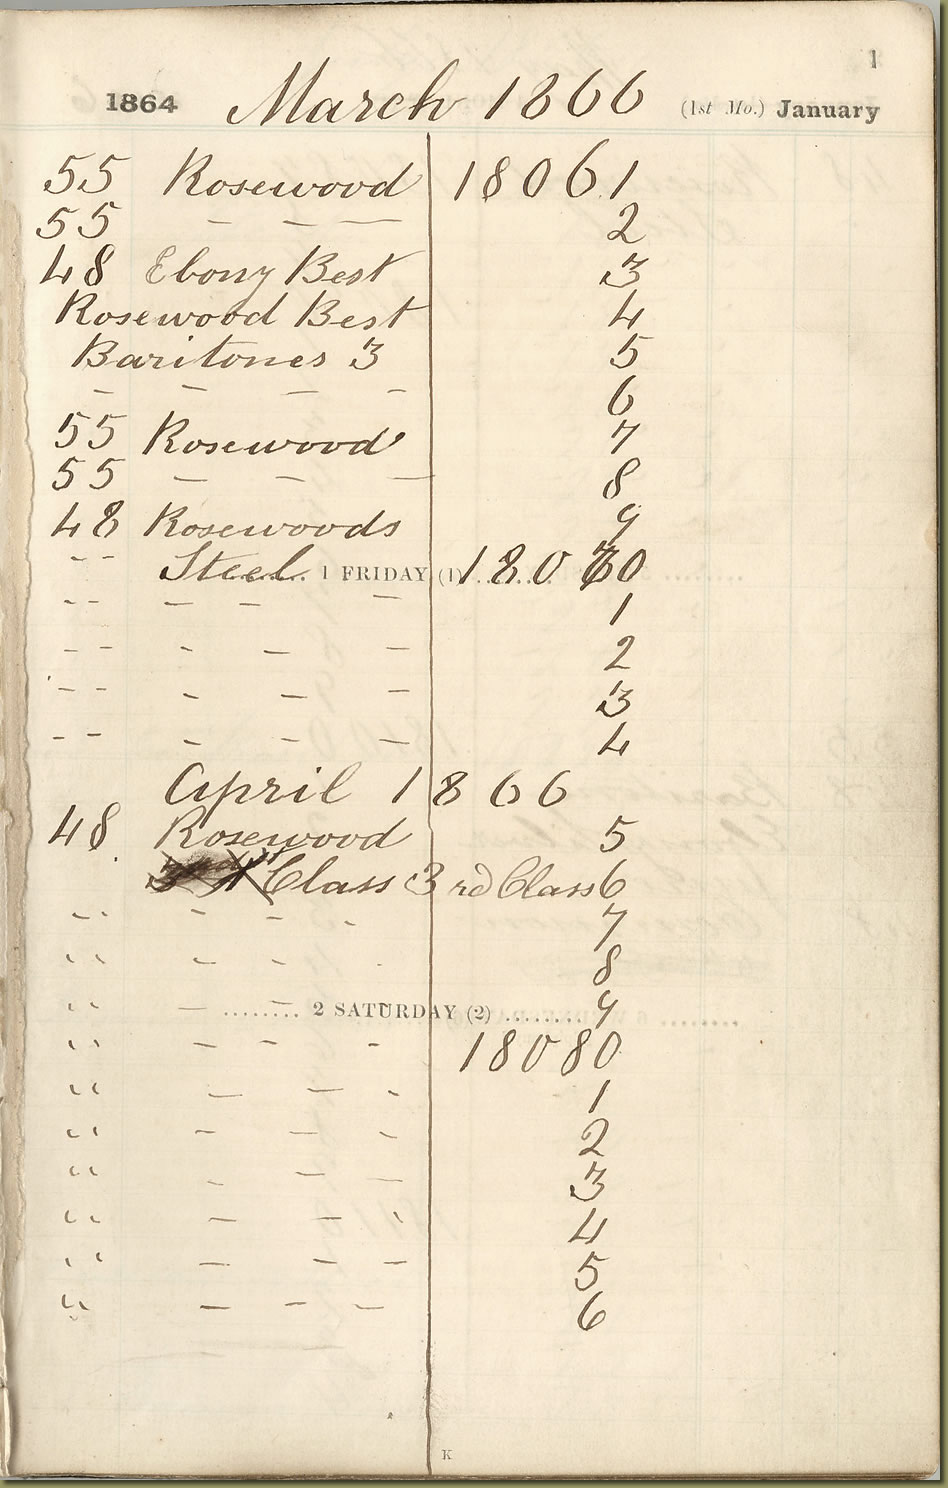 1
1864 March 1866 (1st Mo.) January
55 Rosewood 18061
55 — — — 2
48 Ebony Best 3
Rosewood Best 4
Baritones 3 5
- - - - 6
55 Rosewood 7
55 — - — 8
48 Rosewoods 9
-- Steel 1 FRIDAY (1) 18070
-- - - - 1
-- - - - 2
-- - - - 3
-- - - - 4
April 1866
48 Rosewood 5
Class 3rd Class 6
" - - - 7
" - - - 8
" — - 2 SATURDAY (2) 9
" — - - 18080
" - — - 1
" - - - 2
" - - — 3
" - - - 4
" — - - 5
" — - - 6
K